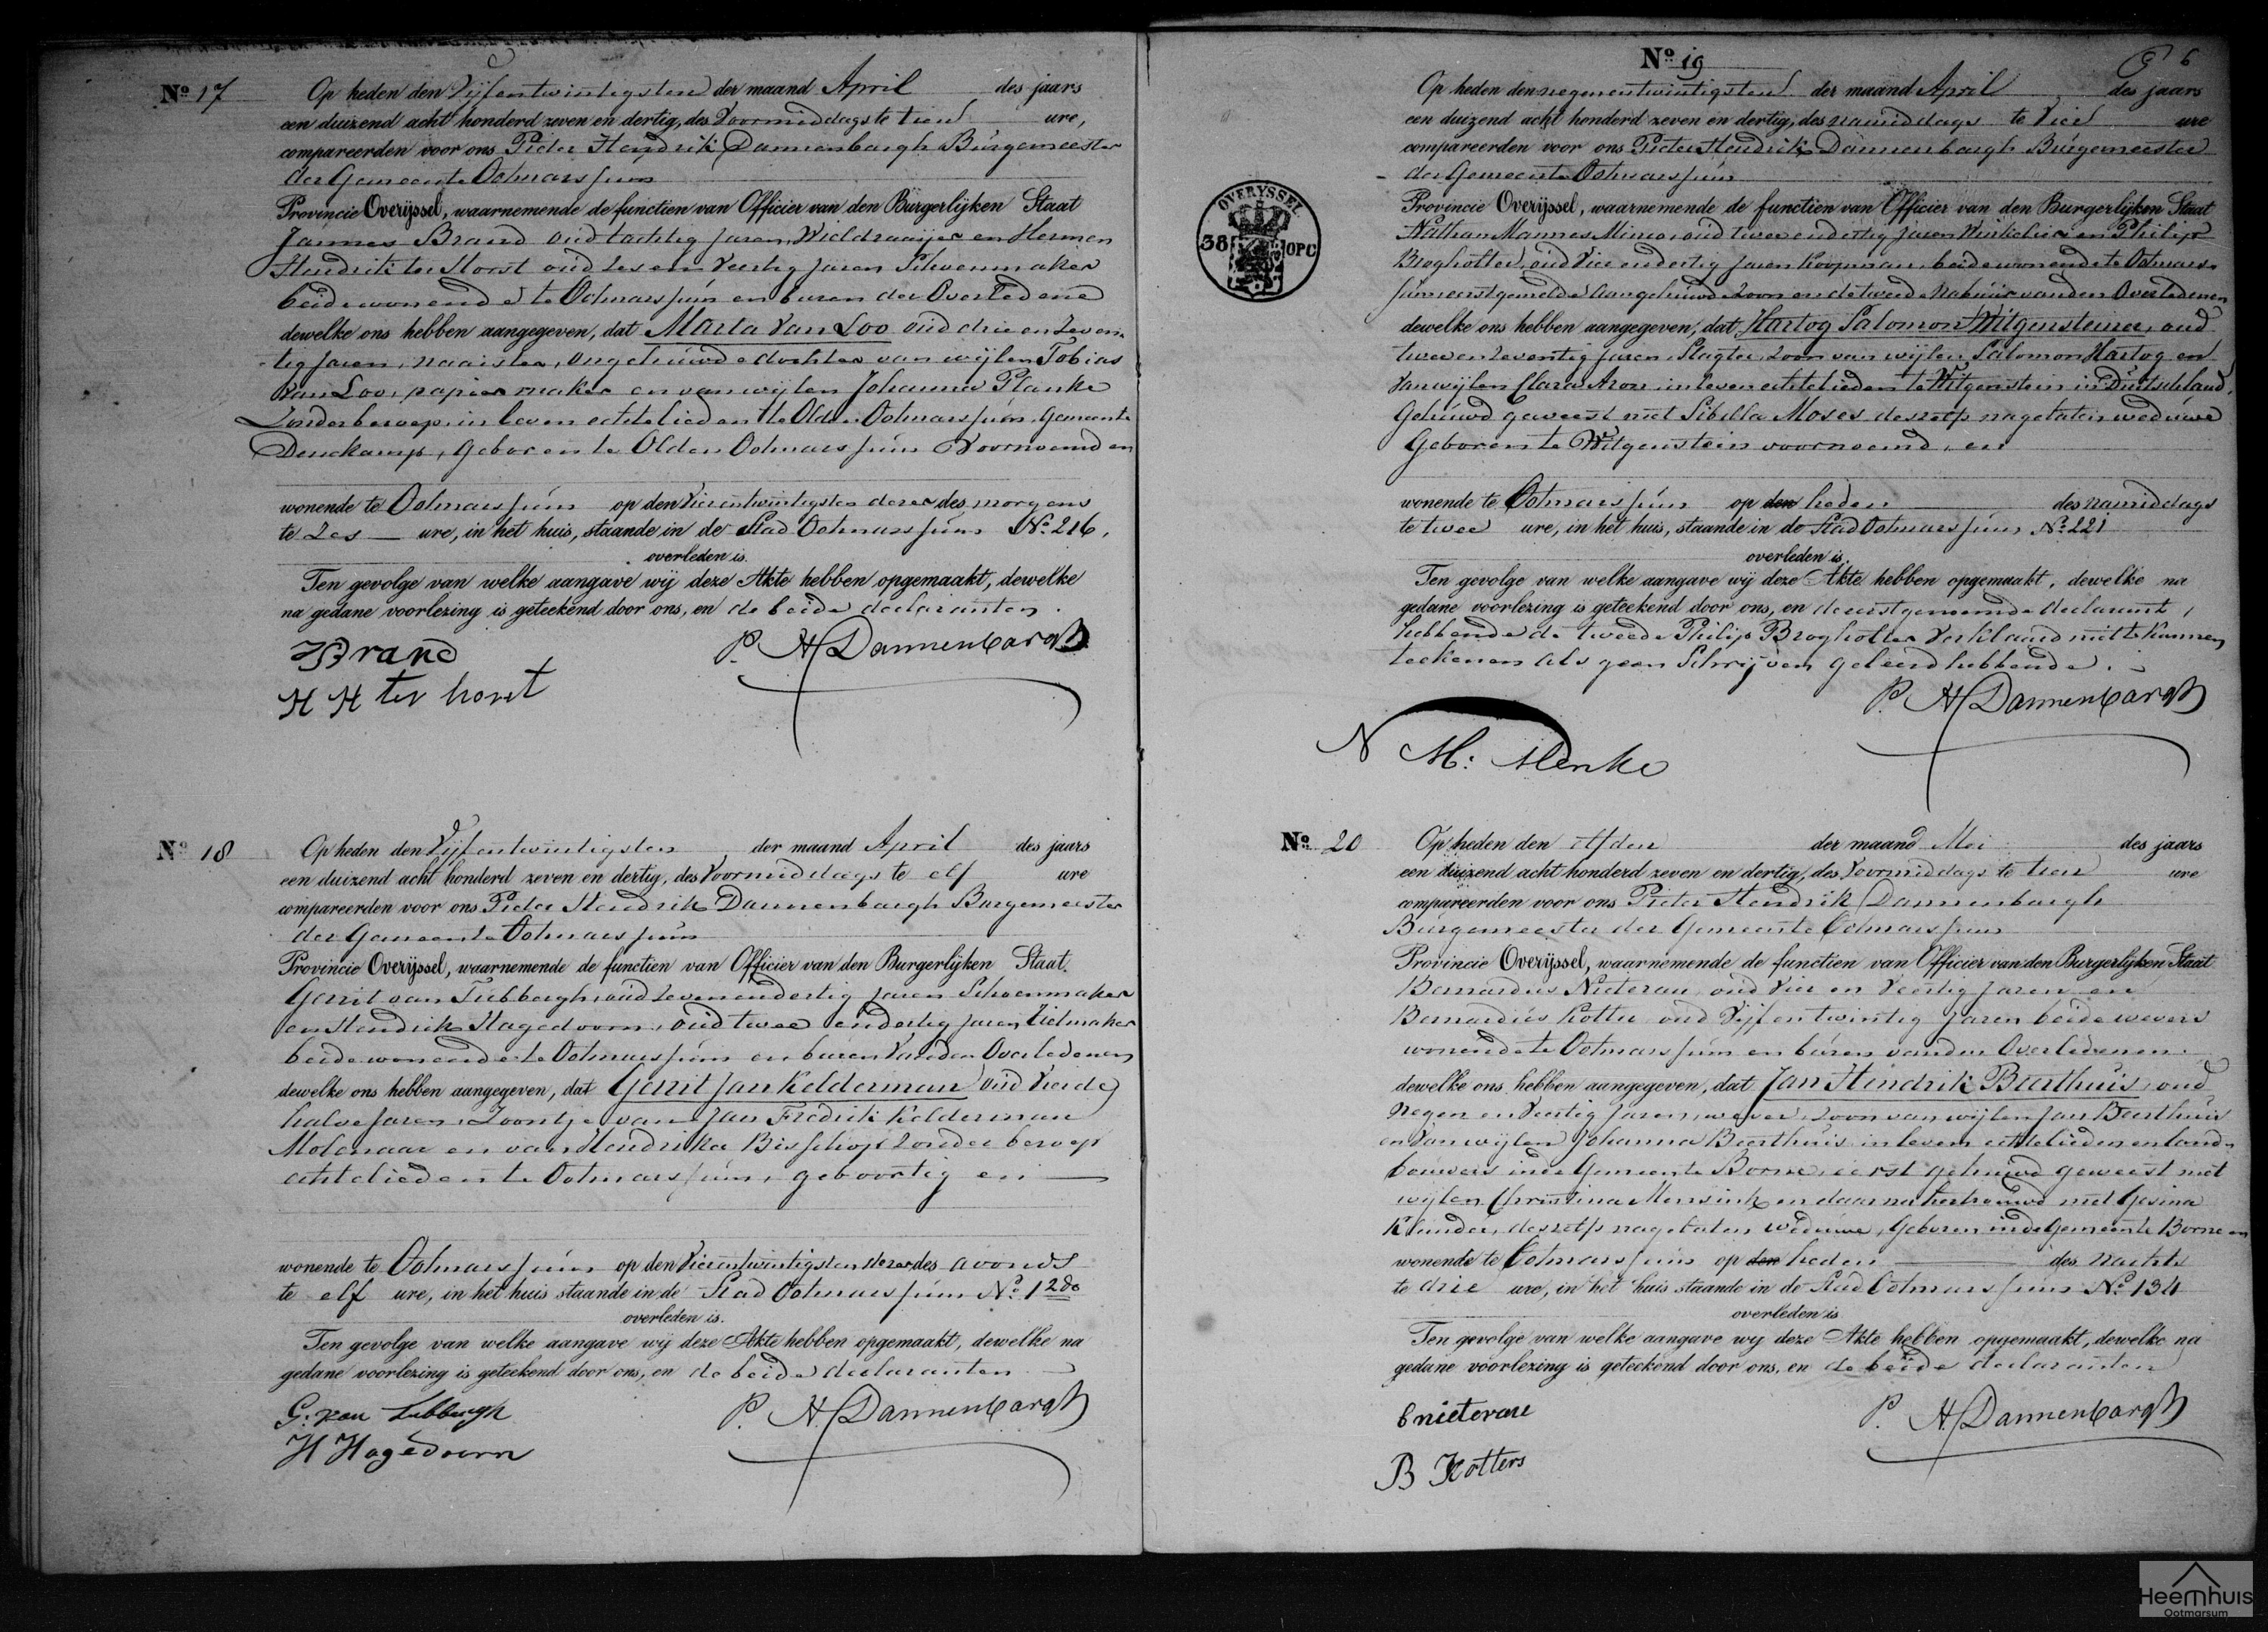 Nº 17
Op heden den Vijfentwintigsten der maand April des jaars
een duizend acht honderd zeven en dertig, des Voormiddags te tien ure,
compareerden voor ons Pieter Hendrik Dannenbargh Burgemeester
der Gemeente Ootmarssum
Provincie Overijssel, waarnemende de functien van Officier van den Burgerlijken Staat
Jannes Brand oud tachtig jaren, Wieldraaijer en Hermen
Hendrik ter Horst oud zes en Veertig jaren Schoenmaker
beide wonende te Ootmarssum en buren der Overledene
dewelke ons hebben aangegeven, dat Maria van Loo oud drie en Zeven-
tig jaren, naaister, ongehuwde dochter van wijlen Tobias
van Loo, papiermaker en van wijlen Johanna Planke
Zonder beroep, in leven echtelieden te Olden Ootmarssum, Gemeente
Denekamp, Geboren te Olden Ootmarssum Voornoemd en
wonende te Ootmarssum op den Vierentwintigsten dezer des morgens
te Zes ure, in het huis, staande in de Stad Ootmarssum Nº 216,
overleden is.
Ten gevolge van welke aangave wij deze Akte hebben opgemaakt, dewelke
na gedane voorlezing is geteekend door ons, en de beide declaranten.
JBrand
P. H Dannenbargh
H H ter horst
Nº 18
Op heden den Vijfentwintigsten der maand April des jaars
een duizend acht honderd zeven en dertig, des Voormiddags te elf ure
compareerden voor ons Pieter Hendrik Dannenbargh Burgemeester
der Gemeente Ootmarssum
Provincie Overijssel, waarnemende de functien van Officier van den Burgerlijken Staat.
Gerrit van Tubbergh, oud zevenendertig jaren Schoenmaker
en Hendrik Hagedoorn, oud twee endertig jaren,
beide wonende te Ootmarssum en buren van den Overledenen
dewelke ons hebben aangegeven, dat Gerrit Jan Kelderman oud Vierde
halve jaren, Zoontje van Jan Fredrik Kelderman
Molenaar en van Hendrika Bisschop zonder beroep
echtelieden te Ootmarssum, geboortig en
wonende te Ootmarssum op den Vierentwintigsten dezer des avonds
te elf ure, in het huis staande in de Stad Ootmarssum Nº
overleden is.
Ten gevolge van welke aangave wij deze Akte hebben opgemaakt, dewelke na
gedane voorlezing is geteekend door ons, en de beide declaranten
G: van Tubbergh
P. H Dannenbargh
H Hagedoorn
Nº 19
6
Op heden den negenentwintigsten der maand April des jaars
een duizend acht honderd zeven en dertig, des namiddags te Vier ure
compareerden voor ons Pieter Hendrik Dannenbargh Burgemeester
der Gemeente Ootmarssum
OVERYSSEL
38 OPC
Provincie Overijssel, waarnemende de functien van Officier van den Burgerlijken Staat
Nathan Mannes oud twee endertig jaren en Philip
Broghotter, oud Vier endertig jaren Koopman, beide wonende te Ootmars-
sum eerstgemelde aangehuwde Zoon en de tweede Nabuur van den Overledenen
dewelke ons hebben aangegeven, dat Hartog Salomon Witgensteiner, oud
twee en zeventig jaren, Slagter, zoon van wijlen Salomon Hartog en
van wijlen Clara Aron in leven echtelieden te Witgenstein in Duitschland,
Gehuwd geweest met Sibilla Moses deszelfs nagelaten weduwe
Geboren te Witgenstein voornoemd, en
wonende te Ootmarssum op den heden des namiddags
te twee ure, in het huis, staande in de Stad Ootmarssum Nº 221
overleden is.
Ten gevolge van welke aangave wij deze Akte hebben opgemaakt, dewelke na
gedane voorlezing is geteekend door ons, en de eerstgenoemde declarant,
hebbende de tweede Philip Broghotter Verklaard niet te kunnen
teekenen als geen Schrijven geleerd hebbende.
P. H Dannenbargh
N M: Menko
Nº 20
Op heden den 11den der maand Mei des jaars
een duizend acht honderd zeven en dertig, des Voormiddags te tien ure
compareerden voor ons Pieter Hendrik Dannenbargh
Burgemeester der Gemeente Ootmarssum
Provincie Overijssel, waarnemende de functien van Officier van den Burgerlijken Staat
Bernardus Nieterau, oud Vier en Veertig jaren en
Bernardus Kotter oud Vijfentwintig jaren beide wevers
wonende te Ootmarssum en buren van den Overledenen.
dewelke ons hebben aangegeven, dat Jan Hendrik Beerthuis, oud
Negen en Veertig jaren, wever, zoon van wijlen Jan Beerthuis
en van wijlen Johanna Beerthuis in leven echtelieden en land-
bouwers in de Gemeente Borne, eerst gehuwd geweest met
wijlen Christina Mensink en daarna hertrouwd met Gesina
Klunder, deszelfs nagelaten weduwe, Geboren in de Gemeente Borne en
wonende te Ootmarssum op den heden des nachts
te drie ure, in het huis staande in de Stad Ootmarssum Nº 134
overleden is
Ten gevolge van welke aangave wy deze Akte hebben opgemaakt, dewelke na
gedane voorlezing is geteekend door ons, en de beide declaranten
B nieterau
P. H. Dannenbargh
B Kotters
Heemhuis
Ootmarsum